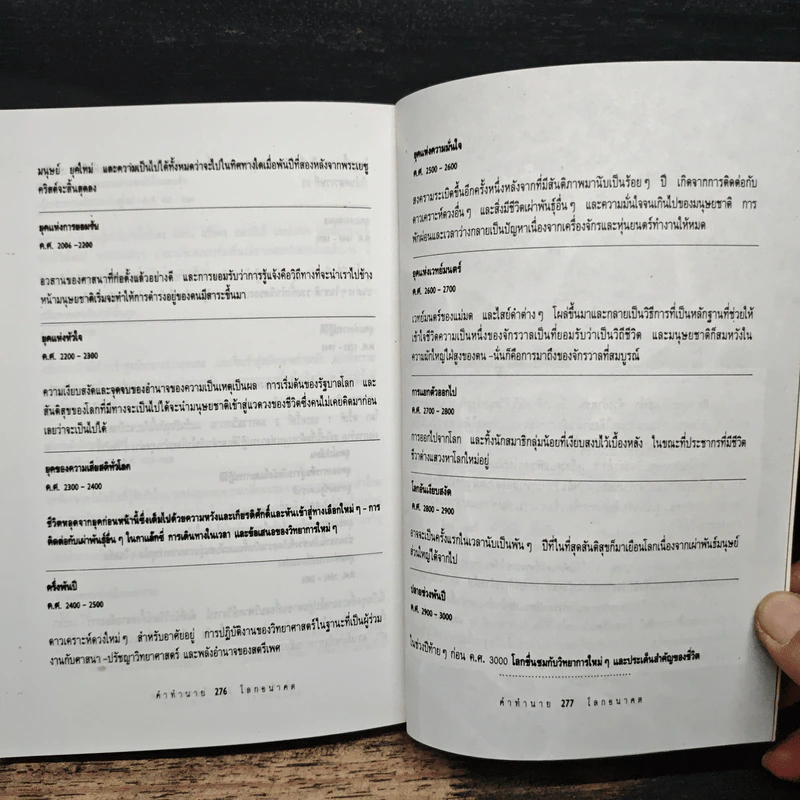 มนุษย์ ยุคใหม่ และความเป็นไปได้ทั้งหมดว่าจะไปในทิศทางใดเมื่อพันปีที่สองหลังจากพระเยซู
คริสต์จะสิ้นสุดลง
ยุคแห่งการยอมรับ
ค.ศ. 2006 -2200
อวสานของศาสนาที่ก่อตั้งแล้วอย่างดี และการยอมรับว่าการรู้แจ้งคือวิถีทางที่จะนำเราไปข้าง
หน้ามนุษยชาติเริ่มจะทำให้การดำรงอยู่ของคนมีสาระขึ้นมา
ยุคแห่งหัวใจ
ค.ศ. 2200 - 2300
ความเงียบสงัดและจุดจบของอำนาจของความเป็นเหตุเป็นผล การเริ่มต้นของรัฐบาลโลก และ
สันติสุขของโลกที่มีทางจะเป็นไปได้จะนำมนุษยชาติเข้าสู่แวดวงของชีวิตซึ่งคนไม่เคยคิดมาก่อน
เลยว่าจะเป็นไปได้
ยุคของความเสียสติทั่วโลก
ค.ศ. 2300 - 2400
ชีวิตหลุดจากยุคก่อนหน้านี้ซึ่งเต็มไปด้วยความหวังและเกียรติศักดิ์และหันเข้าสู่ทางเลือกใหม่ๆ - การ
ติดต่อกับเผ่าพันธุ์อื่นๆ ในกาแล็กซี่ การเดินทางในเวลา และข้อเสนอของวิทยาการใหม่ๆ
ครึ่งพันปี
ค.ศ. 2400 - 2500
ดาวเคราะห์ดวงใหม่ๆ สำหรับอาศัยอยู่ การปฏิบัติงานของวิทยาศาสตร์ในฐานะที่เป็นผู้ร่วม
งานกับศาสนา -ปรัชญาวิทยาศาสตร์ และพลังอำนาจของสตรีเพศ
คำทำนาย 276 โลกอนาคต
ยุคแห่งความมั่นใจ
ค.ศ. 2500 - 2600
สงครามระเบิดขึ้นอีกครั้งหนึ่งหลังจากที่มีสันติภาพมานับเป็นร้อยๆ ปี เกิดจากการติดต่อกับ
ดาวเคราะห์ดวงอื่นๆ และสิ่งมีชีวิตเผ่าพันธุ์อื่นๆ และความมั่นใจจนเกินไปของมนุษยชาติ การ
พักผ่อนและเวลาว่างกลายเป็นปัญหาเนื่องจากเครื่องจักรและหุ่นยนตร์ทำงานให้หมด
ยุคแห่งเวทย์มนตร์
ค.ศ. 2600 - 2700
เวทย์มนตร์ของแม่มด และไสย์ดำต่างๆ โผล่ขึ้นมาและกลายเป็นวิธีการที่เป็นหลักฐานที่ช่วยให้
เข้าใจชีวิตความเป็นหนึ่งของจักรวาลเป็นที่ยอมรับว่าเป็นวิถีชีวิต และมนุษยชาติก็สมหวังใน
ความมักใหญ่ใฝ่สูงของตน -นั่นก็คือการมาถึงของจักรวาลที่สมบูรณ์
การแยกตัวออกไป
ค.ศ. 2700 - 2800
การออกไปจากโลก และทิ้งนักสมาธิกลุ่มน้อยที่เงียบสงบไว้เบื้องหลัง ในขณะที่ประชากรที่มีชีวิต
ชีวาต่างแสวงหาโลกใหม่อยู่
โลกอันเงียบสงัด
ค.ศ. 2800 - 2900
อาจจะเป็นครั้งแรกในเวลานับเป็นพันๆ ปีที่ในที่สุดสันติสุขก็มาเยือนโลกเนื่องจากเผ่าพันธ์มนุษย์
ส่วนใหญ่ได้จากไป
ปลายช่วงพันปี
ค.ศ. 2900 - 3000
ในช่วงปีท้ายๆ ก่อน ค.ศ. 3000 โลกชื่นชมกับวิทยาการใหม่ๆ และประเด็นสำคัญของชีวิต
คำทำนาย 277 โลกอนาคต